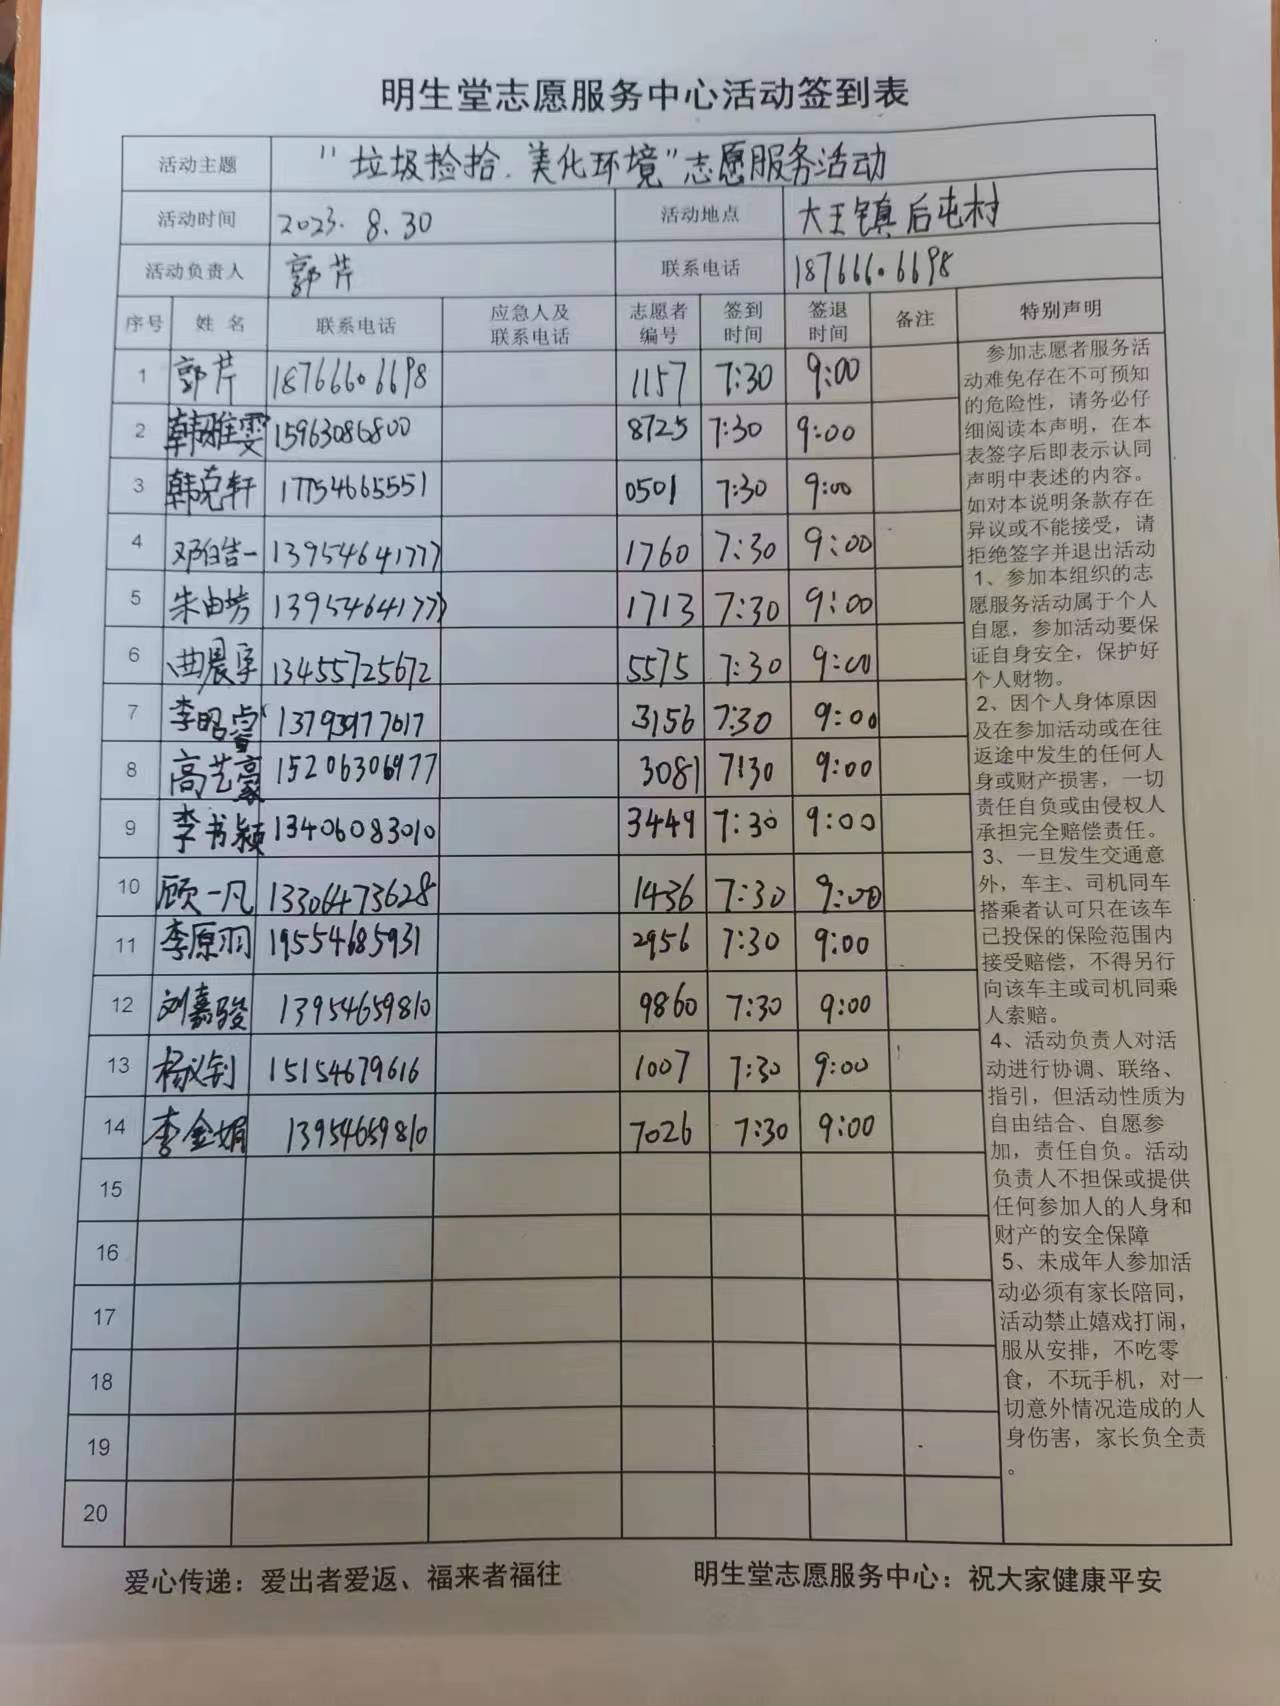 明生堂志愿服务中心活动签到表
活动主题 “垃圾捡拾.美化环境”志愿服务活动
活动时间 2023.8.30 活动地点 大王镇后屯村
活动负责人 郭芹 联系电话 18766606698
序号 姓名 联系电话 应急人及联系电话 志愿者编号 签到时间 签退时间 备注 特别声明
1 郭芹 18766606698 1157 7:30 9:00
2 韩雅雯 15963086800 8725 7:30 9:00
3 韩克轩 17754665551 0501 7:30 9:00
4 邓皓一 13954641777 1760 7:30 9:00
5 朱由芳 13954641777 1713 7:30 9:00
6 曲晨宇 13455725672 5575 7:30 9:00
7 李昭睿 13793977617 3156 7:30 9:00
8 高艺豪 15206306977 3081 7:30 9:00
9 李书颍 13406083010 3449 7:30 9:00
10 顾一凡 13306473628 1436 7:30 9:00
11 李原羽 19554685931 2956 7:30 9:00
12 刘嘉骏 13954659810 9860 7:30 9:00
13 杨义钊 15154679616 1007 7:30 9:00
14 李金娟 13954659810 7026 7:30 9:00
15
16
17
18
19
20
参加志愿者服务活
动难免存在不可预知
的危险性，请务必仔
细阅读本声明，在本
表签字后即表示认同
声明中表述的内容。
如对本说明条款存在
异议或不能接受，请
拒绝签字并退出活动
1、参加本组织的志
愿服务活动属于个人
自愿，参加活动要保
证自身安全，保护好
个人财物。
2、因个人身体原因
及在参加活动或在往
返途中发生的任何人
身或财产损害，一切
责任自负或由侵权人
承担完全赔偿责任。
3、一旦发生交通意
外，车主、司机同车
搭乘者认可只在该车
已投保的保险范围内
接受赔偿，不得另行
向该车主或司机同乘
人索赔。
4、活动负责人对活
动进行协调、联络、
指引，但活动性质为
自由结合、自愿参
加，责任自负。活动
负责人不担保或提供
任何参加人的人身和
财产的安全保障
5、未成年人参加活
动必须有家长陪同，
活动禁止嬉戏打闹，
服从安排，不吃零
食，不玩手机，对一
切意外情况造成的人
身伤害，家长负全责
。
爱心传递：爱出者爱返、福来者福往 明生堂志愿服务中心：祝大家健康平安